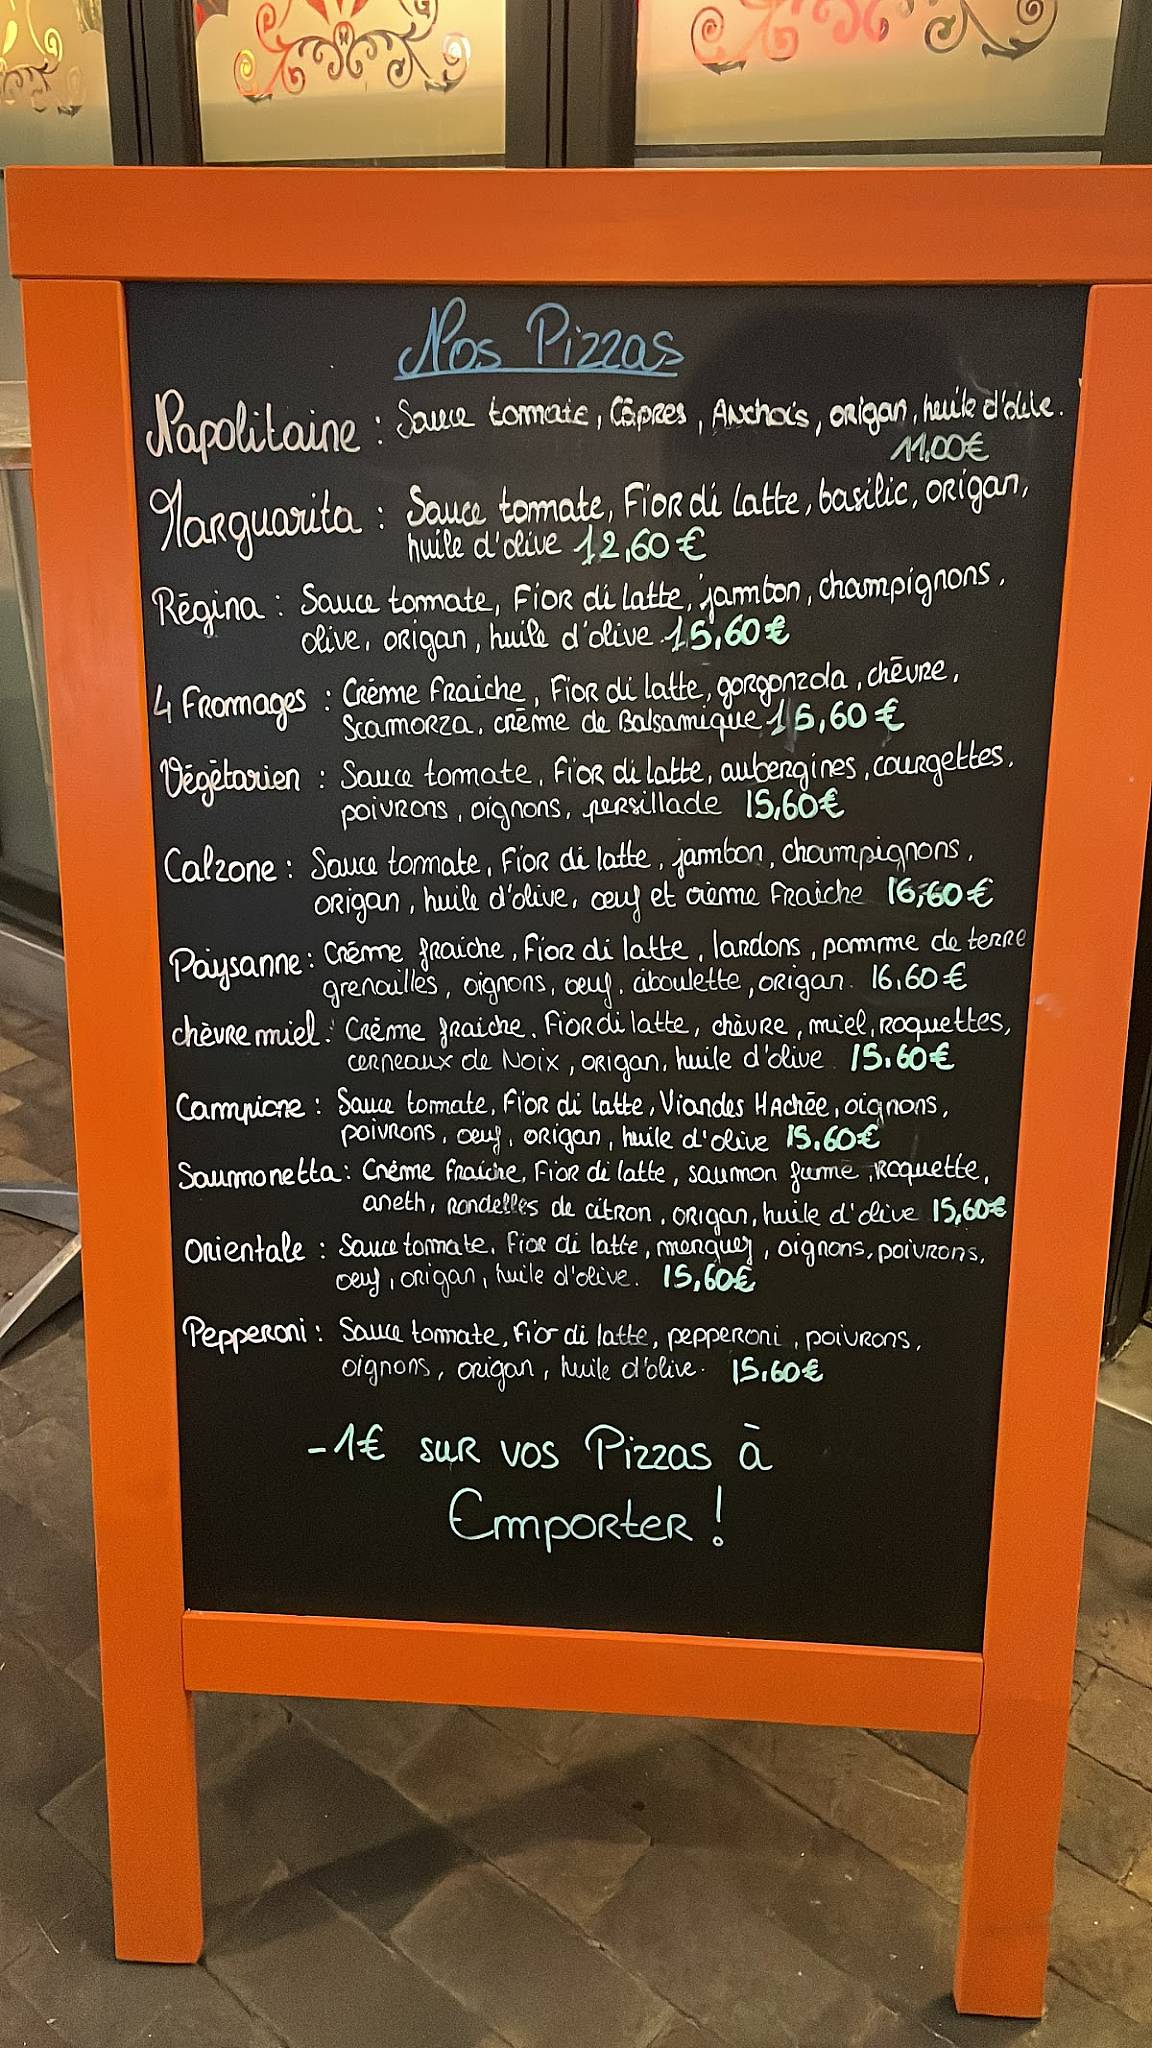 Nos Pizzas
Napolitaine : Sauce tomate, Câpres, Anchois, origan, huile d'olive.
11,00€
Marguarita : Sauce tomate, Fior di Latte, basilic, origan,
huile d'olive 12,60€
Régina : Sauce tomate, Fior di latte, jambon, champignons,
olive, origan, huile d'olive 15,60€
4 Fromages : Crème Fraiche, Fior di latte, gorgonzola, chèvre,
Scamorza, crème de Balsamique 15,60€
Végétarien : Sauce tomate, Fior di latte, aubergines, courgettes,
poivrons, oignons, persillade 15,60€
Calzone : Sauce tomate, Fior di latte, jambon, champignons,
origan, huile d'olive, œuf et crème Fraiche 16,60€
Paysanne : Crème fraiche, Fior di latte, lardons, pomme de terre
grenailles, oignons, œuf, ciboulette, origan. 16,60€
chèvre miel : Crème fraiche, Fior di latte, chèvre, miel, roquettes,
cerneaux de Noix, origan, huile d'olive. 15,60€
Campione : Sauce tomate, Fior di latte, Viandes HAchée, oignons,
poivrons, œuf, origan, huile d'olive 15,60€
Saumonetta : Crème fraiche, Fior di latte, saumon fumé, roquette,
aneth, rondelles de citron, origan, huile d'olive 15,60€
Orientale : Sauce tomate, Fior di latte, merguez, oignons, poivrons,
œuf, origan, huile d'olive. 15,60€
Pepperoni : Sauce tomate, Fior di latte, pepperoni, poivrons,
oignons, origan, huile d'olive. 15,60€
-1€ sur vos Pizzas à
Emporter !